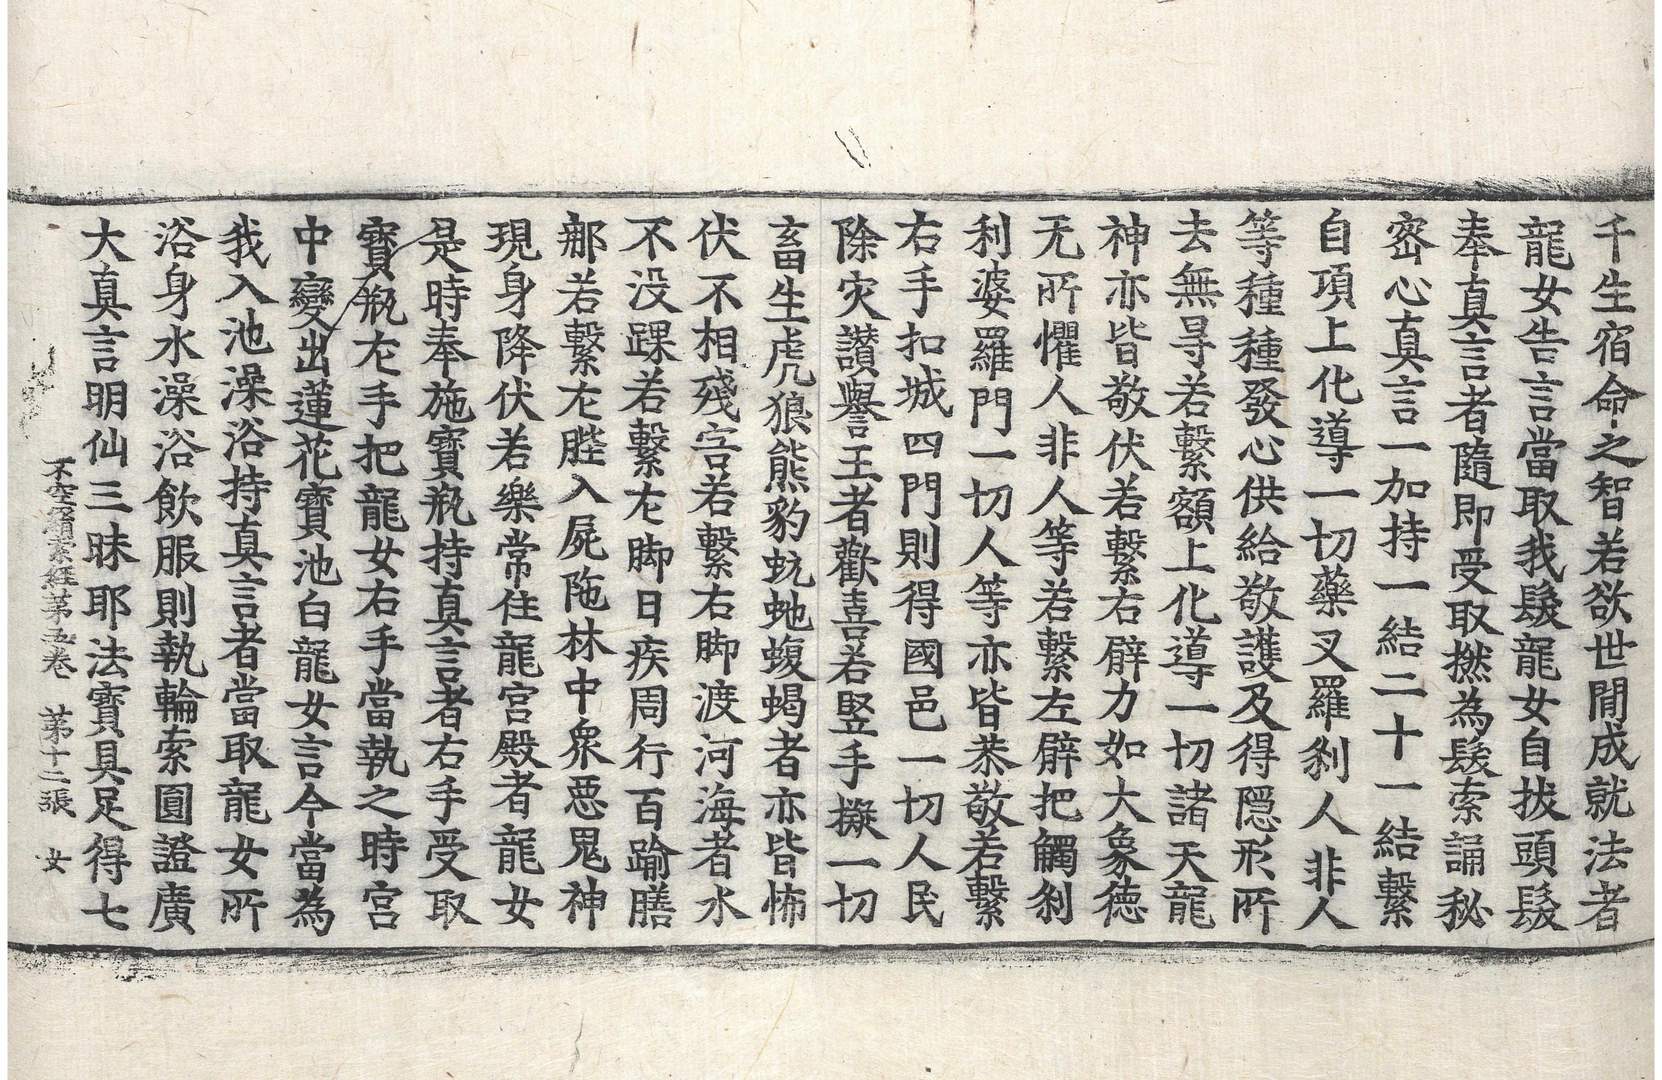 千生宿命之智若欲世間成就法者
龍女告言當取我髮龍女自拔頭髮
奉真言者隨即受取撚為髮索誦秘
密心真言一加持一結二十一結繫
自項上化導一切藥叉羅刹人非人
等種種發心供給敬護及得隱形所
去無㝵若繫額上化導一切諸天龍
神亦皆敬伏若繫右臂力如大象德
无所懼人非人等若繫左臂把觸刹
利婆羅門一切人等亦皆恭敬若繫
右手扣城四門則得國邑一切人民
除灾讃譽王者歡喜若竪手擬一切
畜生虎狼熊豹蚖虵蝮蝎者亦皆怖
伏不相殘害若繫右脚渡河海者水
不没踝若繫左脚日疾周行百踰膳
那若繫左䏶入屍陁林中衆惡鬼神
現身降伏若樂常住龍宮殿者龍女
是時奉施寶瓶持真言者右手受取
寶瓶左手把龍女右手當執之時宮
中變出蓮花寶池白龍女言今當為
我入池澡浴持真言者當取龍女所
浴身水澡浴飲服則執輪索圓證廣
大真言明仙三昧耶法寶具足得七
不空羂索經第五卷 第十二張 女